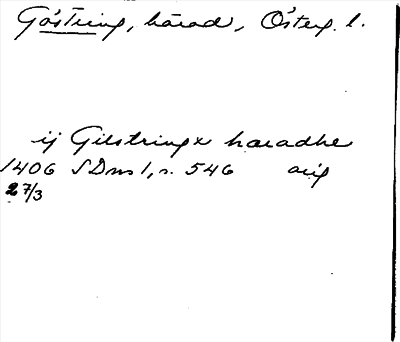 Göstring, härad, Österg. l.
ij Gilstringx haradhe
1406 SDns 1, s. 546 orig
27/3